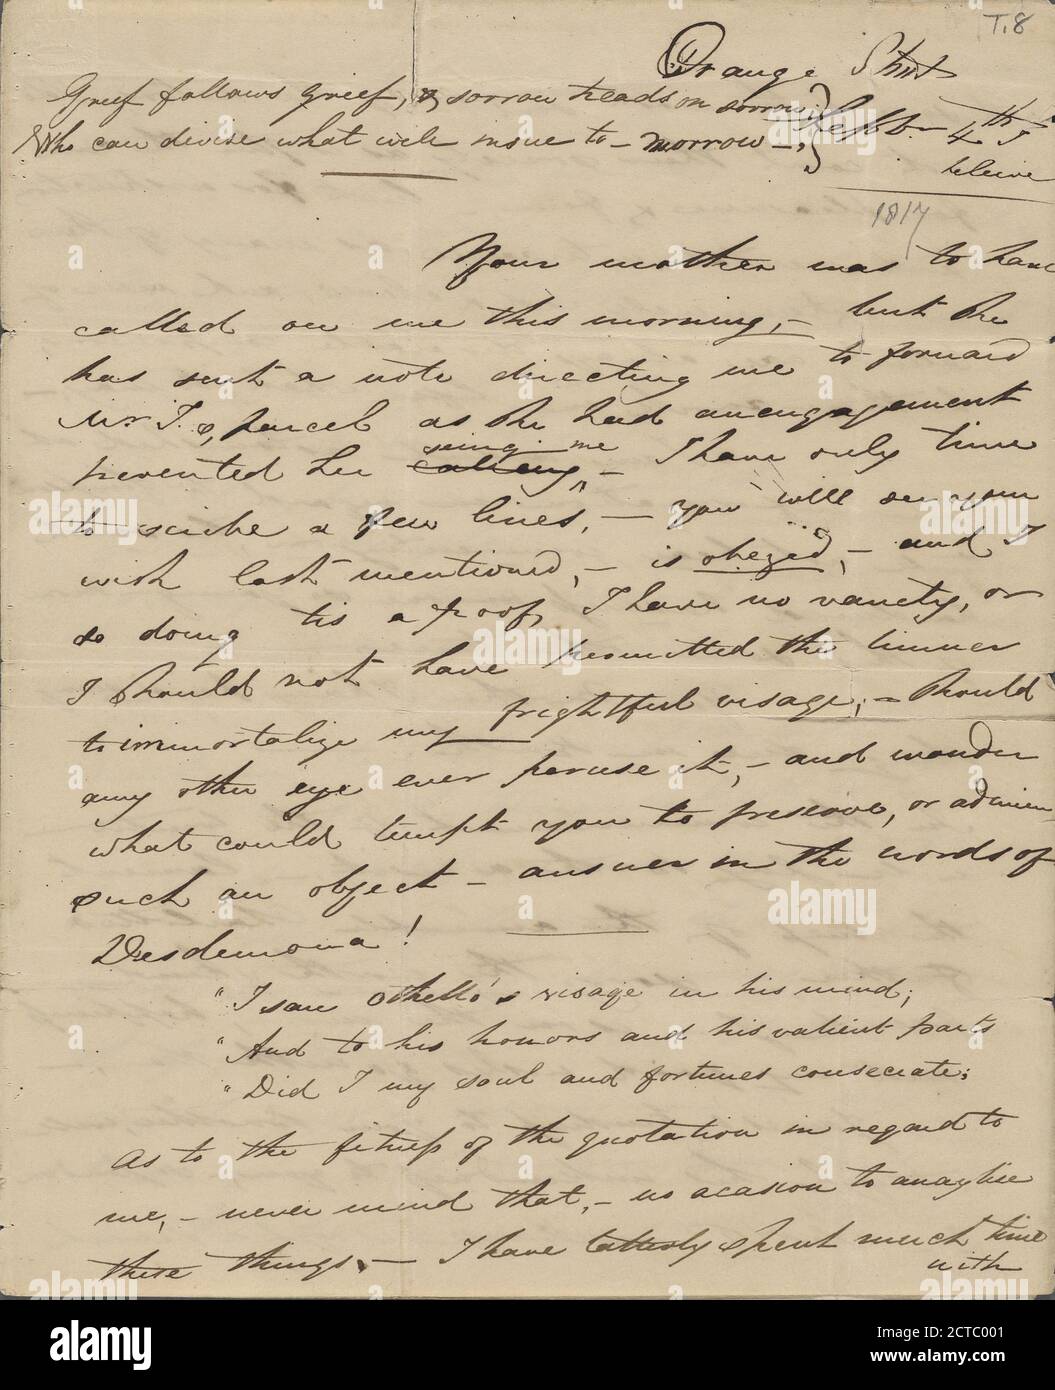 T.8
Orange Street
Grief follows grief, & sorrow treads on sorrow
Septbr 4th I
believe
Who can divise what will insue to-morrow —
1817
Your mother was to have
called on me this morning, — but she
has sent a note directing me to forward
Mr T.s, parcel as she had an engagement
prevented her calling seing me — I have only time
to scribe a few lines, — you will see your
wish last mentioned, — is obezed, — and I
so doing tis a proof, I have no vanety, or
I should not have permitted the limner
to immortalize my frightful visage, — should
any other eye ever peruse it, — and wonder
what could tempt you to preserve, or admire
such an object — answer in the words of
Desdemona!
"I saw Othello's visage in his mind;
"And to his honors and his valient parts
"Did I my soul and fortunes consecrate;
As to the fitness of the quotation in regard to
me, — never mind that, — no acasion to anaylise
these things, — I have latterly spent much time
with
alamy
Image ID: 2CTC001
www.alamy.com